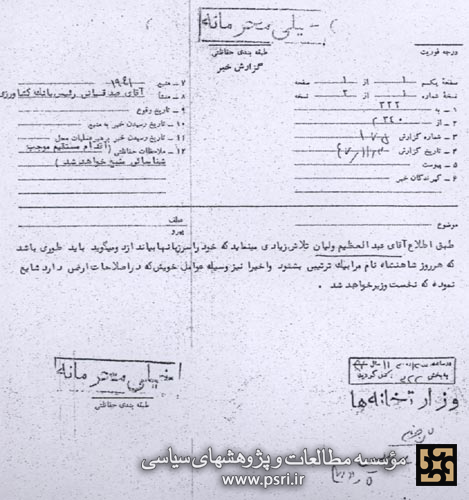 خیلی محرمانه
طبقه بندی حفاظتی
گزارش خبر
درجه فوریت
صفحه یکم ۱ از ۱ صفحه
نسخه شماره ۱ از ۲ نسخه
۱ - به ۳۲۲
۲ - از
۳ - شماره گزارش
۴ - تاریخ گزارش
۵ - پیوست
۶ - گیرندگان خبر
۷ - منبع ۱۹۴۱
۸ - منشأ آقای صدقیانی رئیس بانک کشاورزی
۹ - تاریخ وقوع
۱۰ - تاریخ رسیدن خبر به منبع
۱۱ - تاریخ رسیدن خبر به رهبر عملیات محل
۱۲ - ملاحظات حفاظتی (اقدام مستقیم موجب
شناسائی منبع خواهد شد)
موضوع
عطف
پیرو
طبق اطلاع آقای عبدالعظیم ولیان تلاش زیادی مینماید که خود را سر زبانها بیاندازد و میگوید باید طوری باشد
که هر روز شاهنشاه نام مرا بیک ترتیبی بشنود و اخیرا نیز وسیله عوامل خویش که در اصلاحات ارضی دارد شایع
نموده که نخست وزیر خواهد شد .
خیلی محرمانه
طبقه بندی حفاظتی
وزارتخانه ها
مؤسسه مطالعات و پژوهشهای سیاسی
www.psri.ir